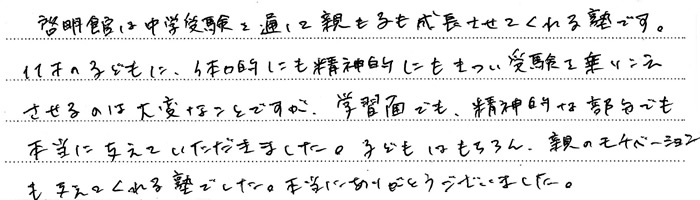 啓明館は中学受験を通して親も子も成長させてくれる塾です。
11才の子どもに、体力的にも精神的にもきつい受験を乗りこえ
させるのは大変なことですが、学習面でも、精神的な部分でも
本当に支えていただきました。子どもはもちろん、親のモチベーション
も支えてくれる塾でした。本当にありがとうございました。